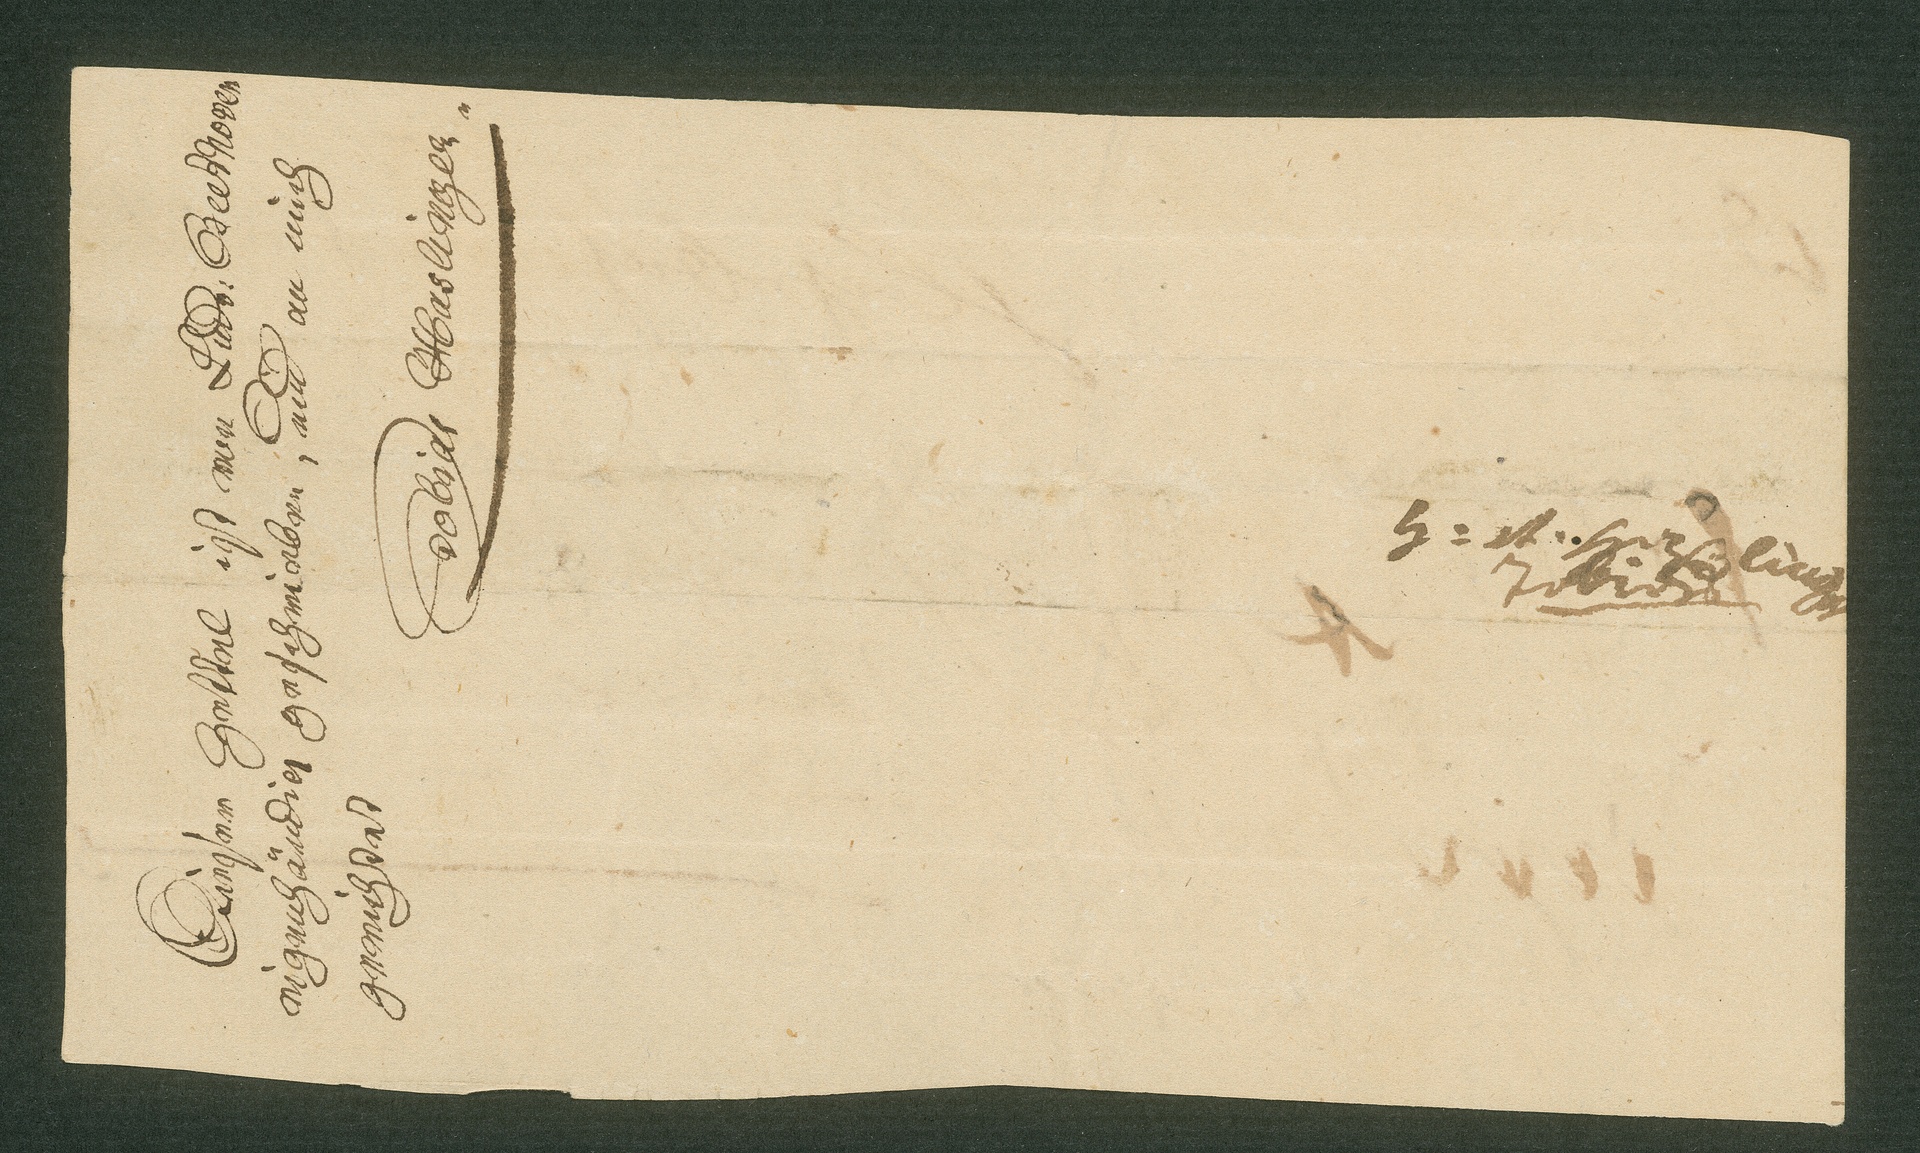 Diesen Zettel ist von Ludv: Beethoven
eigenhändig geschrieben, und an mich
gerichtet
Tobias Haslinger
Tobias